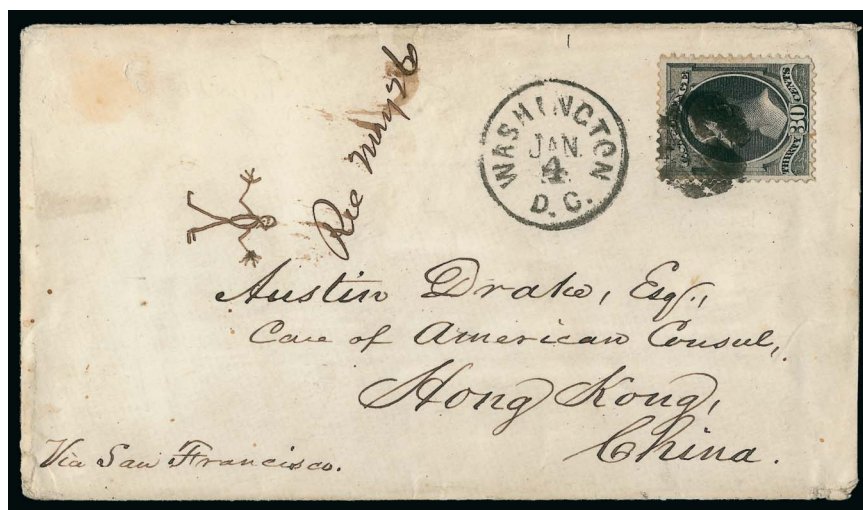 Rec May 26
WASHINGTON
JAN.
4
D. C.
30
Austin Drake, Esq.,
Care of American Consul,
Hong Kong,
China.
Via San Francisco.